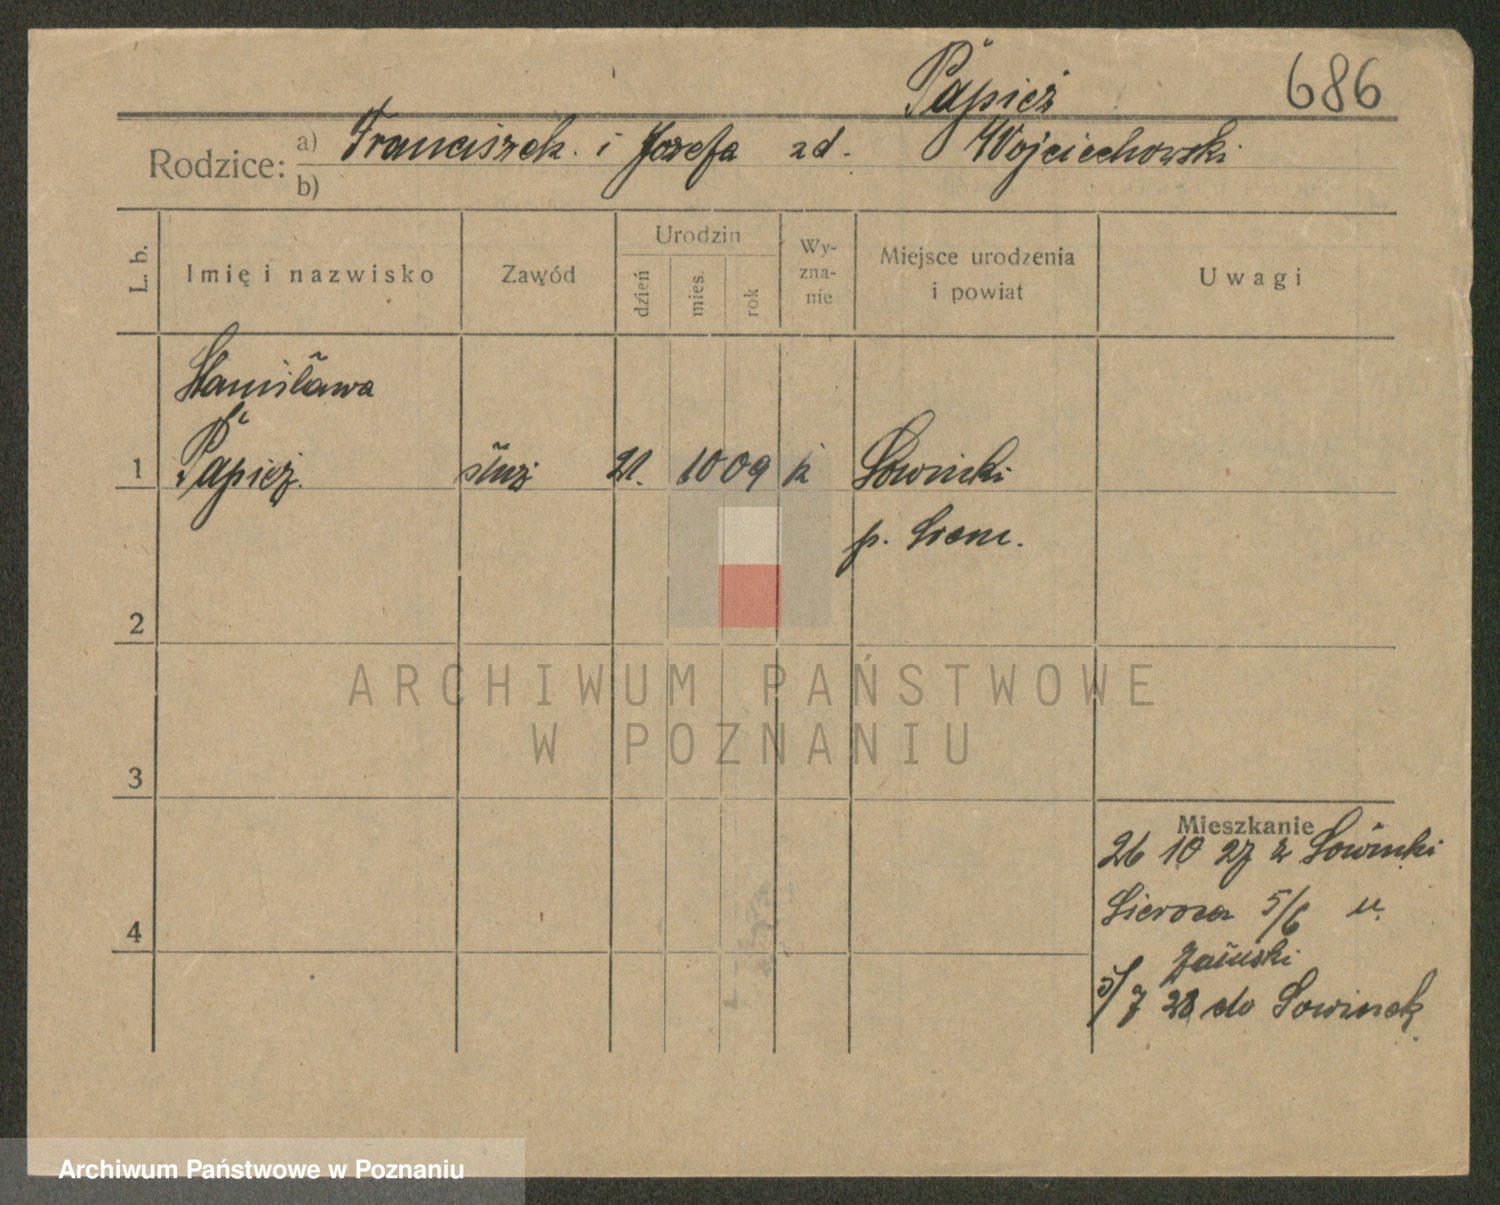 Papież 686
Rodzice: a) Franciszek i Józefa zd. Wojciechowski
b)
L. b. Imię i nazwisko Zawód Urodzin dzień mies. rok Wy-zna-nie Miejsce urodzenia i powiat Uwagi
Stanisława
1 Papież służ 21. 10 09 k Sowinki
p. Śrem.
2
ARCHIWUM PAŃSTWOWE
W POZNANIU
3
Mieszkanie
26 10 27 z Sowinki
5/6 u.
4
5/7 28 do Sowinek
Archiwum Państwowe w Poznaniu